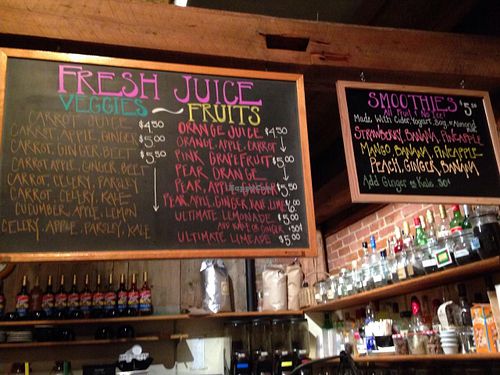 FRESH JUICE
VEGGIES ~ FRUITS
CARROT $4.50
CARROT, APPLE, GINGER $5.00
CARROT, GINGER, BEET $5.50
CARROT, APPLE, GINGER, BEET
CARROT, CELERY, PARSLEY
CARROT, CELERY, KALE
CUCUMBER, APPLE, LEMON
CELERY, APPLE, PARSLEY, KALE
ORANGE JUICE $4.50
ORANGE, APPLE, CARROT
PINK GRAPEFRUIT $5.00
PEAR ORANGE
PEAR, APPLE, $5.50
PEAR, APPLE, GINGER, KALE, LIME $6.00
ULTIMATE LEMONADE $5.00
ADD KALE OR GINGER .50¢
ULTIMATE LIMEADE $5.00
SMOOTHIES $5.50
All Fruit & No Ice!
Made With Cider, Yogurt, Soy, or Almond
STRAWBERRY, BANANA, PINEAPPLE
MANGO, BANANA, PINEAPPLE
PEACH, GINGER, BANANA
Add Ginger or Kale .50¢